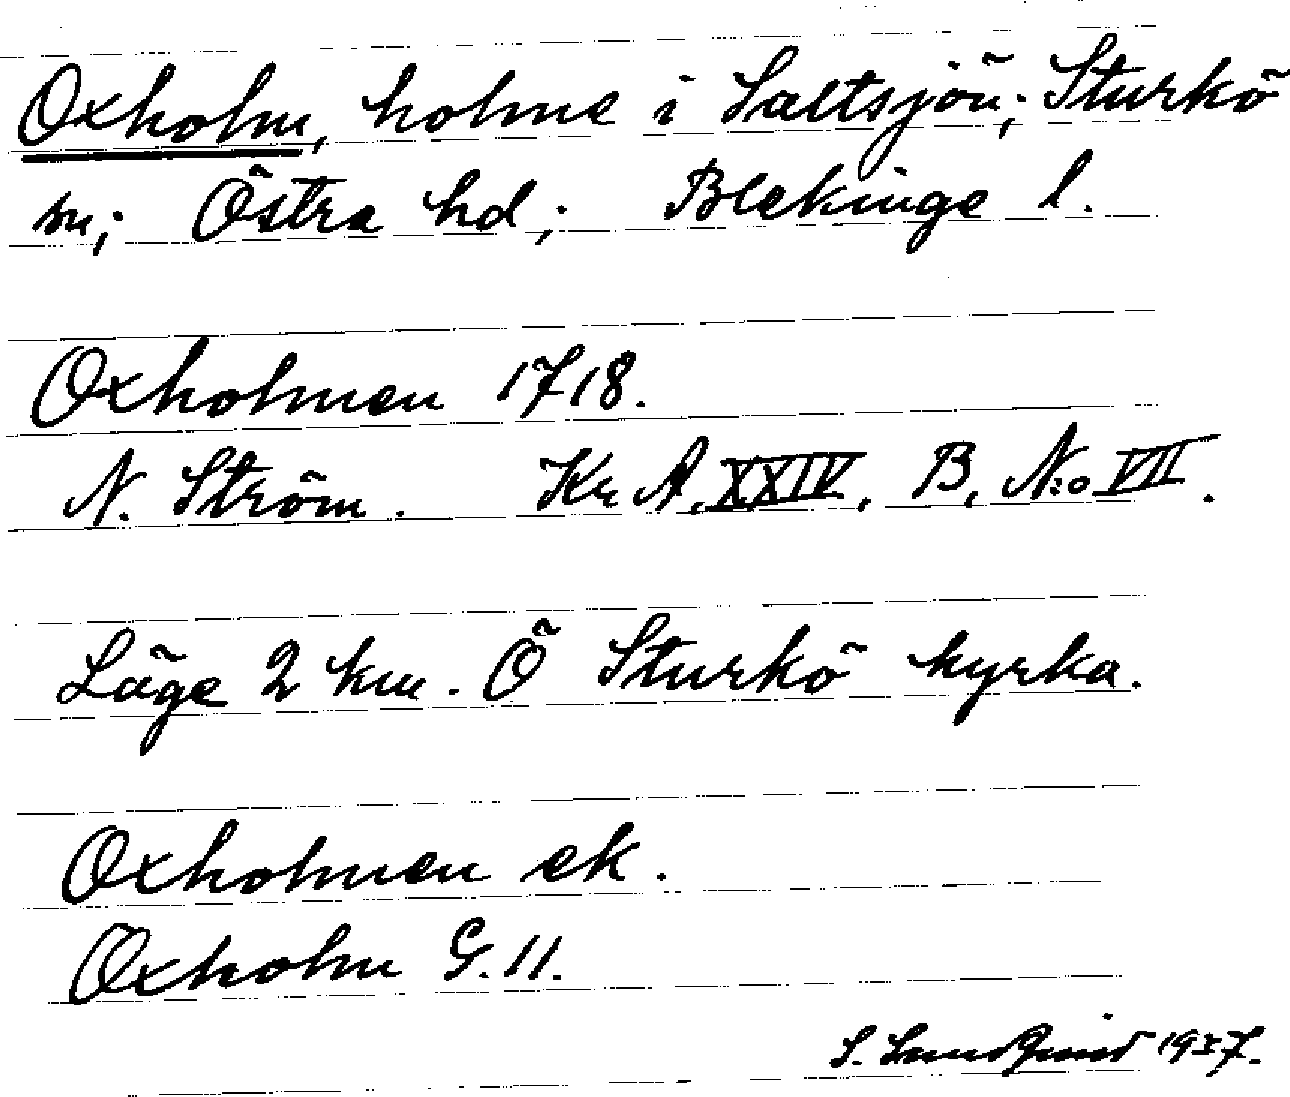 Oxholm, holme i Saltsjön; Sturkö
sn; Östra hd; Blekinge l.
Oxholmen 1718.
N. Ström. Kr A, XXIV, B, N:o VII.
Läge 2 km. Ö Sturkö kyrka.
Oxholmen ek.
Oxholm G. 11.
S. Lundqvist